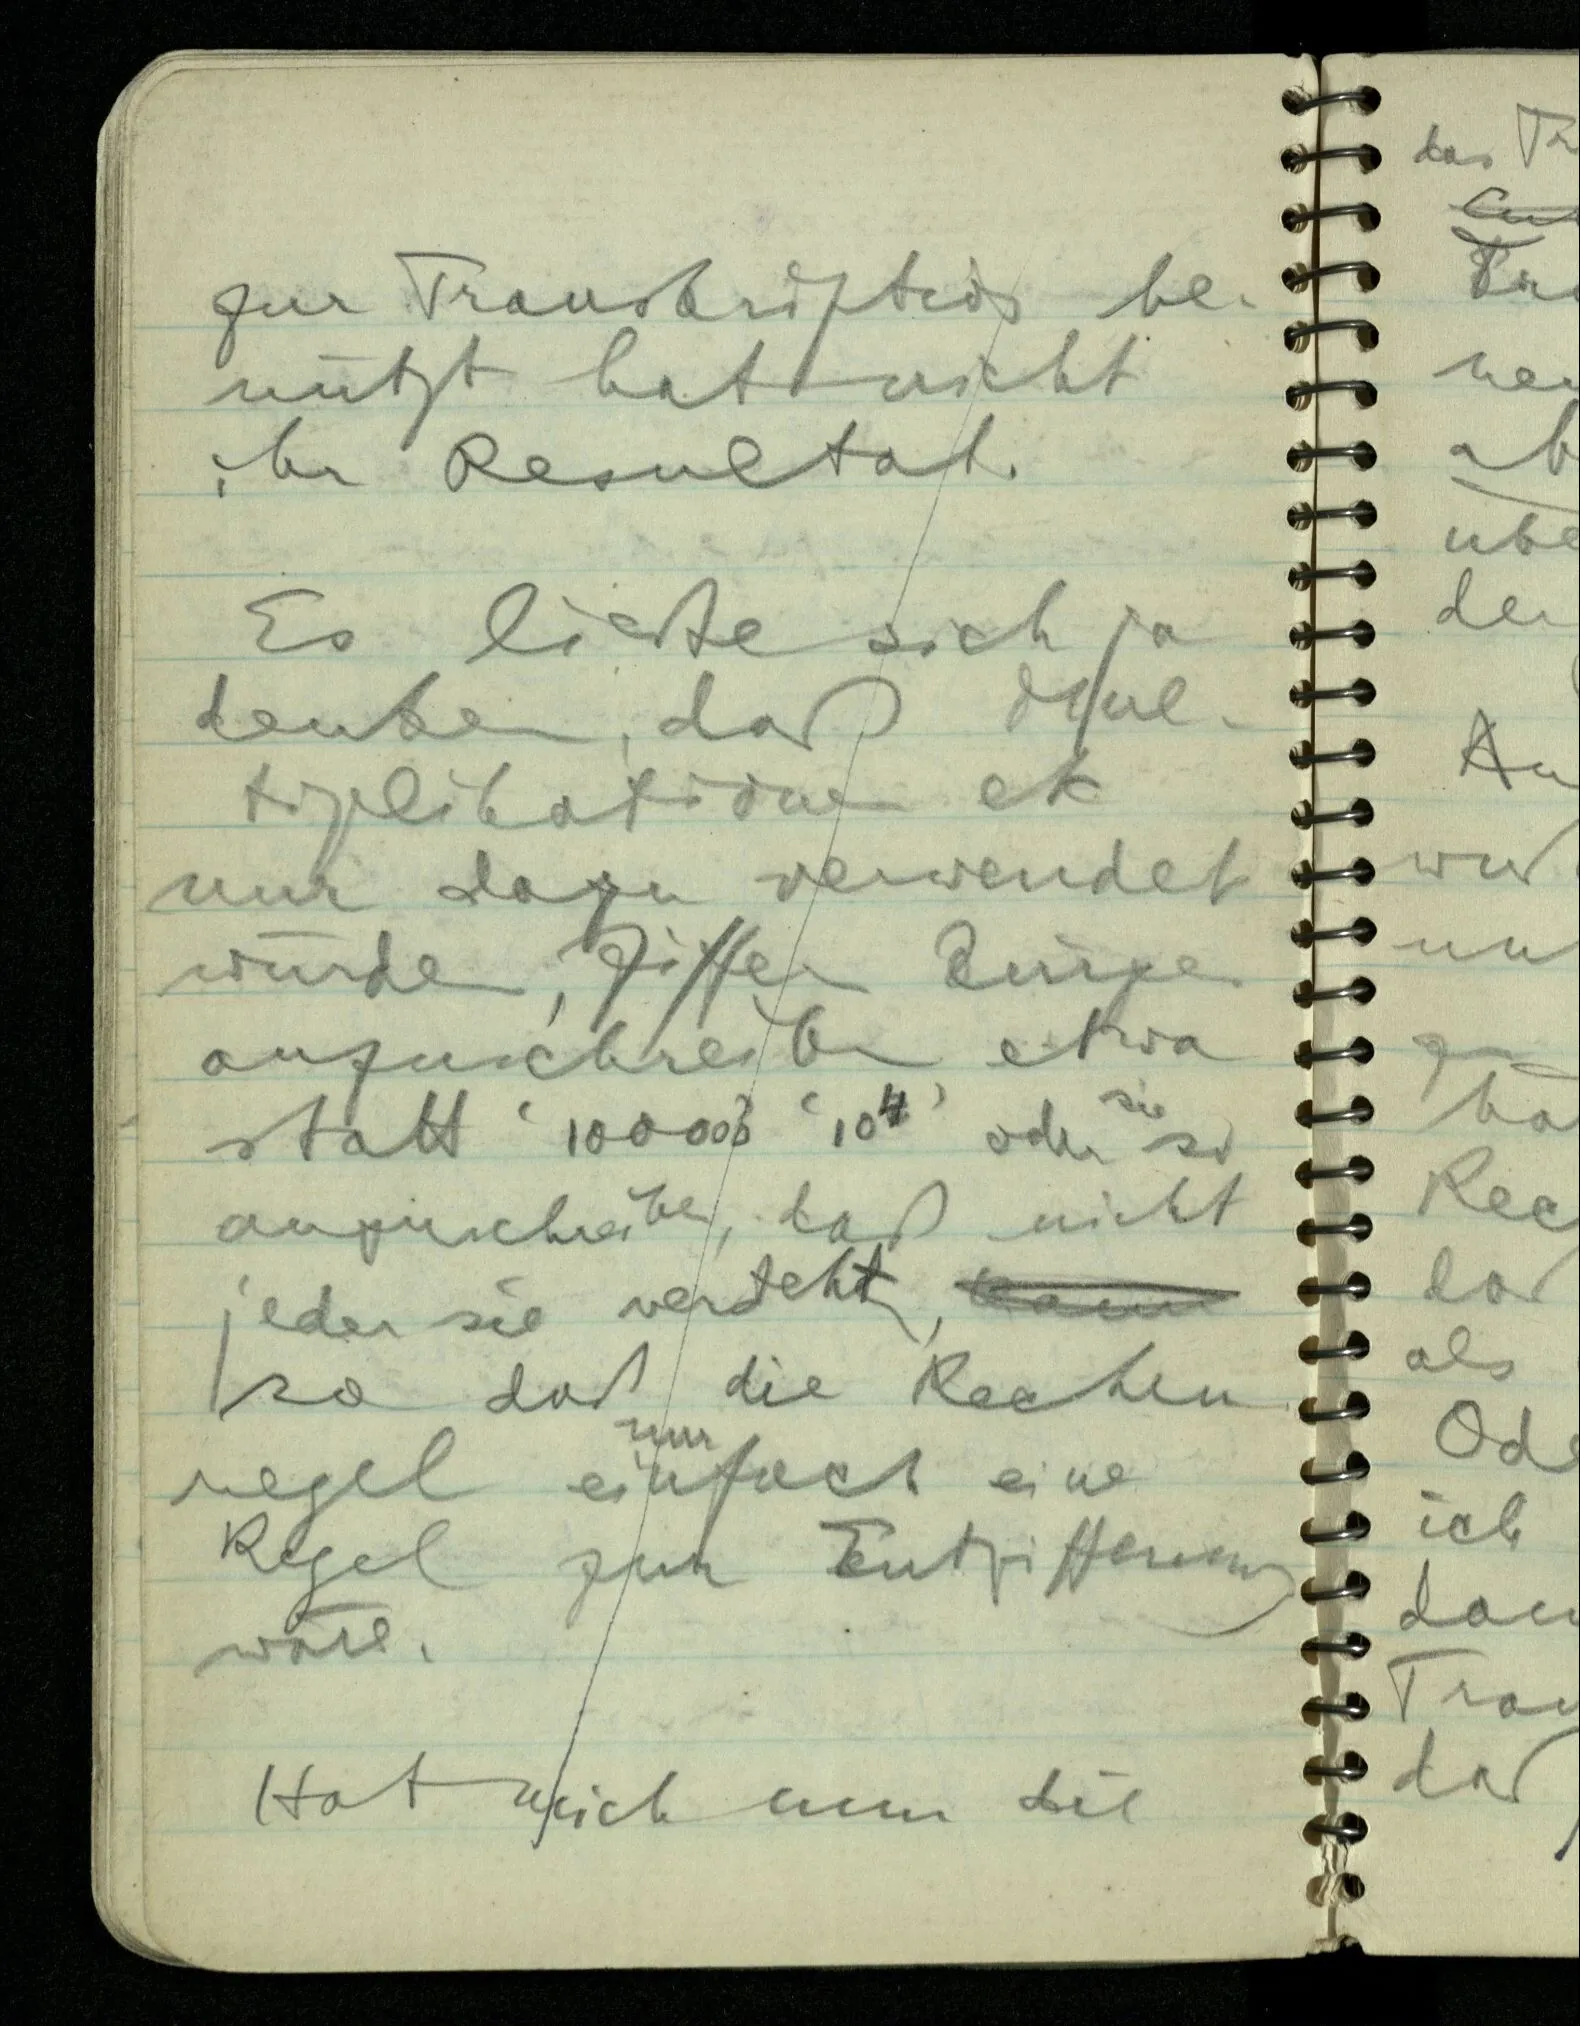 zur Transkription be-
nützt hat nicht
ihr Resultat.
Es ließe sich ja
denken, daß Mul-
tiplikationen etc
nur dazu verwendet
würden, Ziffern kürzer
anzuschreiben etwa
statt ‘10000’ ‘10⁴’ oder sie so
anzuschreiben, daß nicht
jeder sie versteht,
so daß die Rechen
regel nur einfach eine
Regel zur Entzifferung
wäre.
Hat mich nun die
das
über
der
als
ich